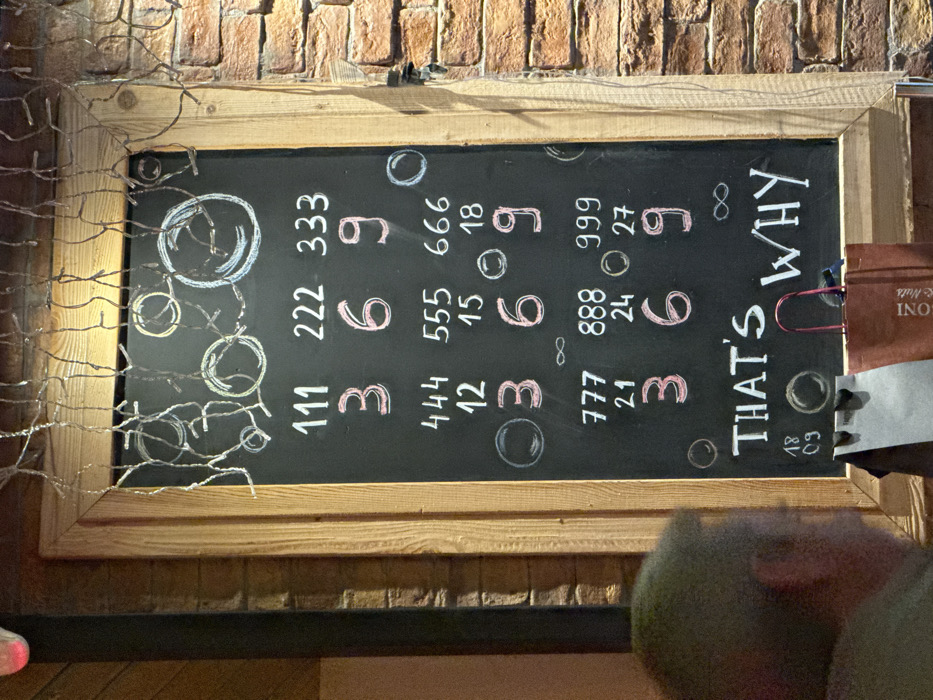 111 222 333
3 6 9
444 555 666
12 15 18
3 6 9
777 888 999
21 24 27
3 6 9
∞
∞
THAT'S WHY
18
09